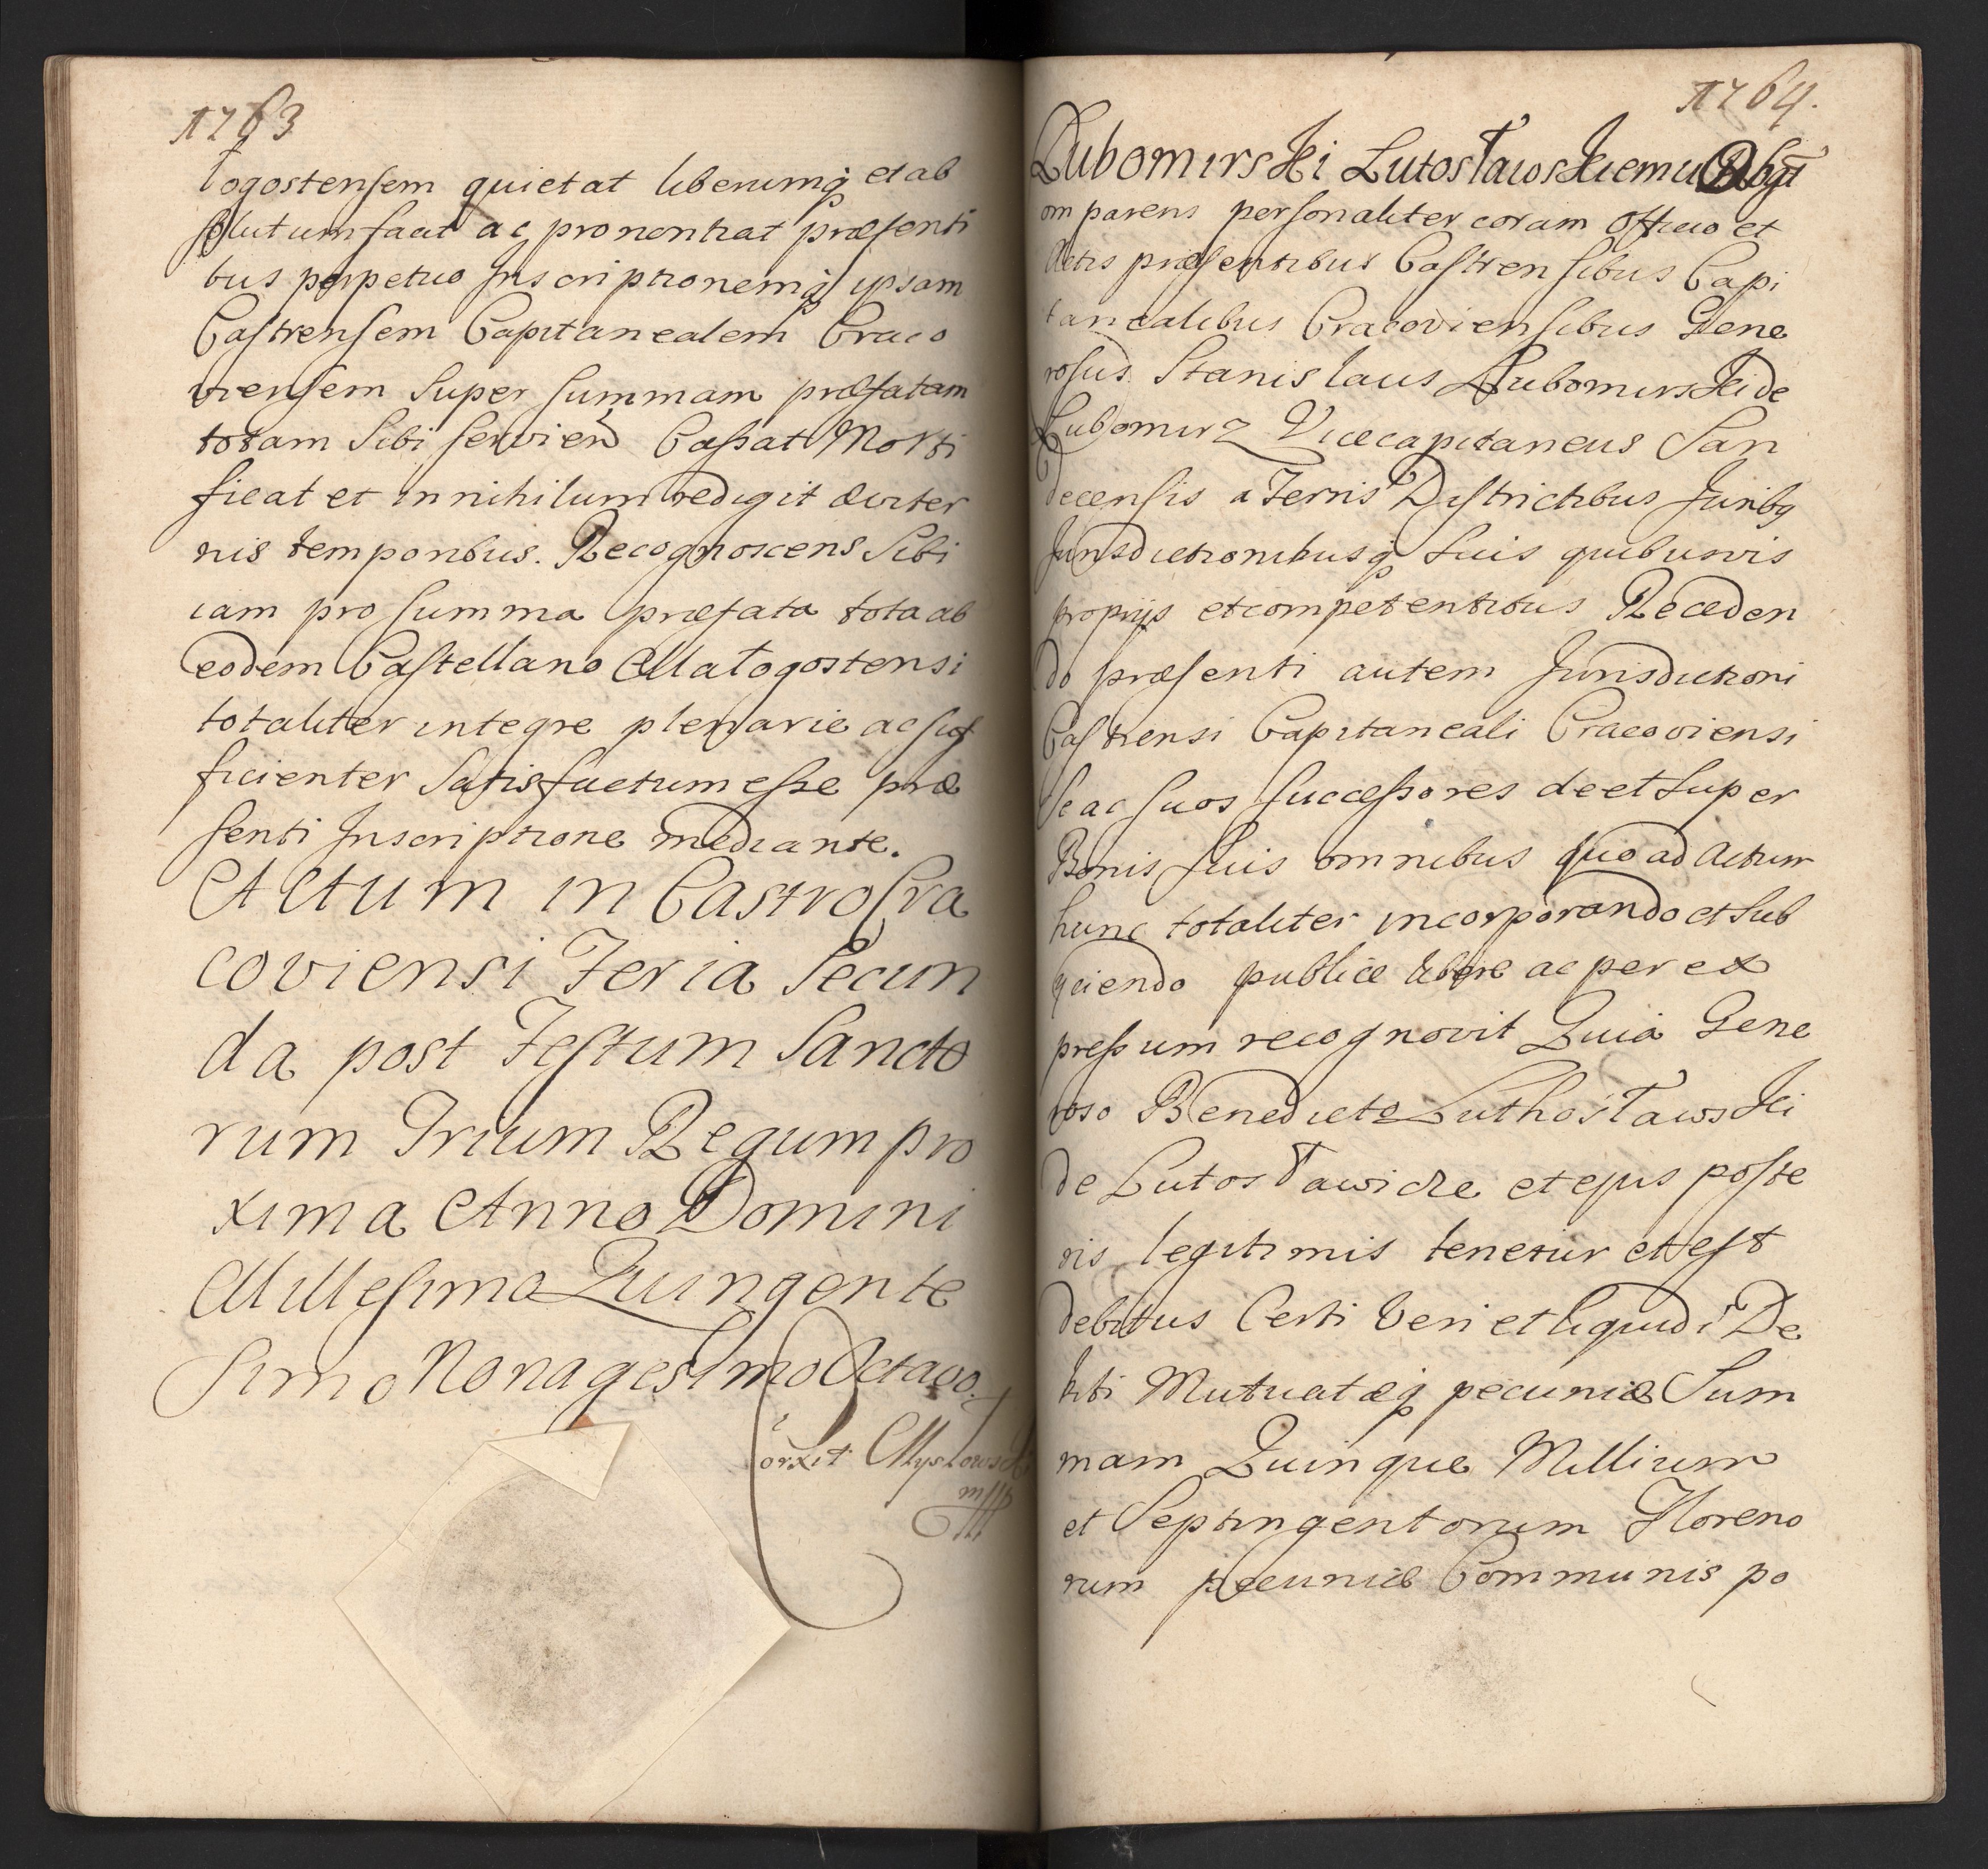 1763
łogostensem quietat liberumq; et ab
solutum facit ac pronontiat præsenti
bus perpetuo Inscriptionemq; ipsam
Castrensem Capitanealem Craco
viensem Super summam præfatam
totam Sibi servien Cassat Morti
ficat et in nihilum redigit æviter
nis temporibus. Recognoscens Sibi
iam pro summa præfata tota ab
eodem Castellano Małogostensi
totaliter integre plenarie ac suf
ficienter Satisfactum esse præ
senti Inscriptione mediante.
Actum in Castro Cra
coviensi Feria Secun
da post Festum Sancto
rum Trium Regum pro
xima Anno Domini
Millesimo Quingente
Simo Nonagesimo Octavo.
Corxit Myslowski
mp
1764.
Lubomirski Lutosławskiemu Obgt
omparens personaliter coram Officio et
Actis præsentibus Castrensibus Capi
tanealibus Cracoviensibus Gene
rosus Stanislaus Lubomirski de
Lubomirz Vicecapitaneus San
decensis a Terris Districtibus Juribq
Jurisdictionibusq; Suis quibusvis
proprijs et competentibus Receden
do præsenti autem Jurisdictioni
Castrensi Capitaneali Cracoviensi
se ac suos successores de et Super
Bonis suis omnibus quo ad Actum
hunc totaliter incorporando et Sub
yciendo publice libere ac per ex
pressum recognovit Quia Gene
roso Benedicto Luthosławski
de Lutosławice et ejus poste
ris legitimis tenetur et est
debitus Certi Veri et liquidi De
biti Mutuatæq; pecuniæ Sum
mam Quinque Millium
et Septingentorum Floreno
rum pecuniæ Communis po